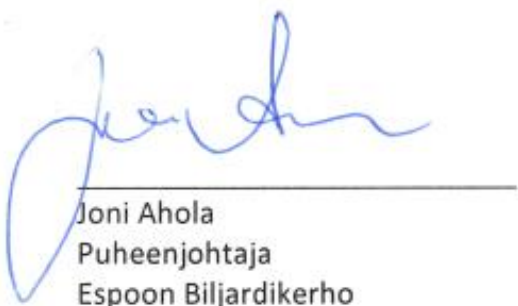 Joni Ahola
Puheenjohtaja
Espoon Biljardikerho